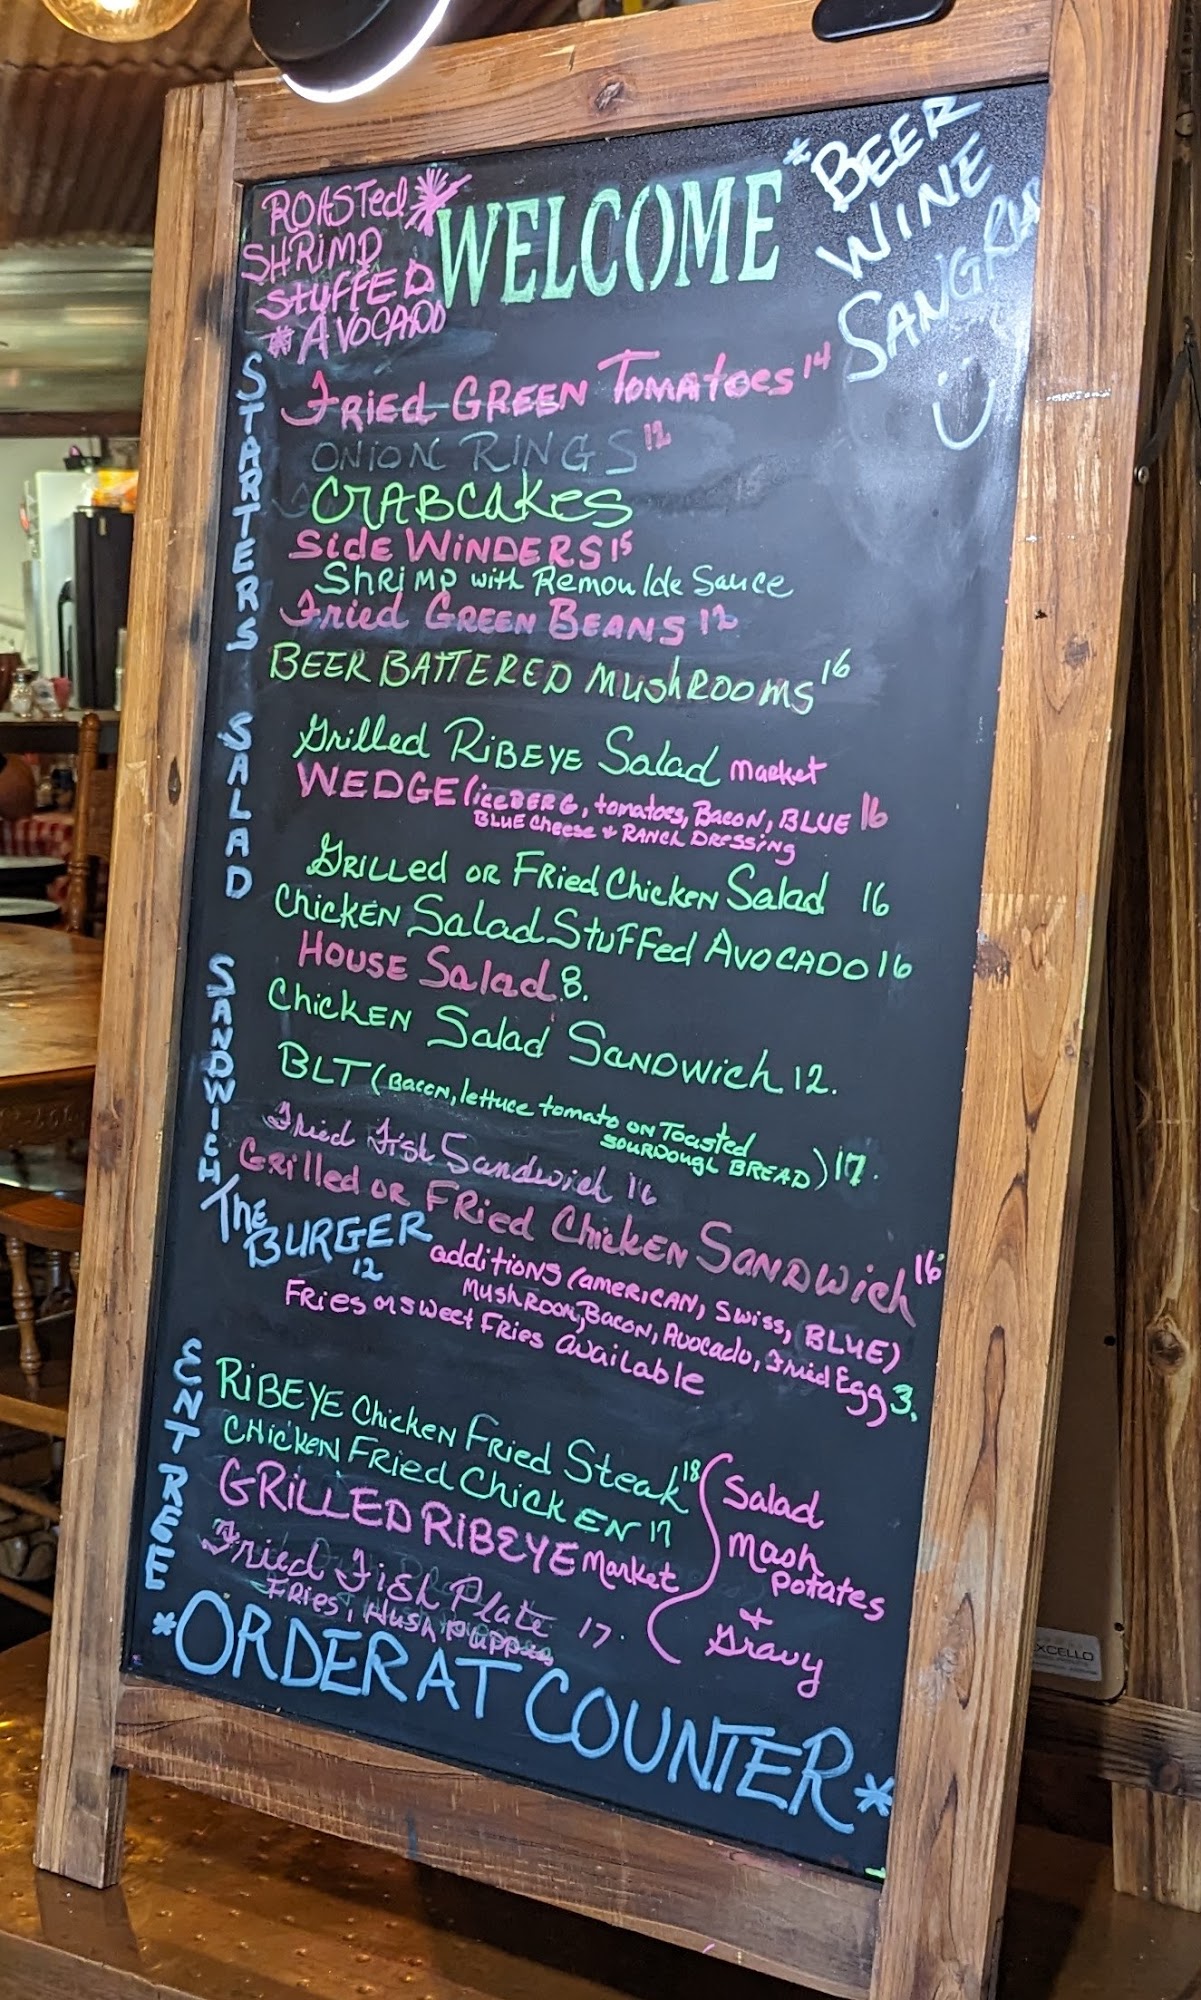 ROASTed
SHRIMP
STUFFED
* AVOCADO
WELCOME
*BEER
WINE
SANGRIA
STARTERS
Fried GREEN TOMATOES 14
ONION RINGS 12
CRABCAKES
Side WINDERS 15
SHRIMP with Remoulde Sauce
Fried GREEN BEANS 12
BEER BATTERED MushROOMS 16
SALAD
Grilled RIBEYE Salad market
WEDGE (iceBERG, tomatoes, BACON, BLUE 16
BLUE Cheese + RANCH DRESSING
GRILLed OR FRied ChickEN Salad 16
ChickEN Salad STUFFed AVOCADO 16
HOUSE Salad 8.
SANDWICH
ChickEN Salad SANDWich 12.
BLT (BACON, lettuce tomato ON Toasted
SOURDOUGH BREAD) 17.
Fried Fish Sandwich 16
GRilled OR FRied ChickEN SANDWich 16
The
BURGER
12
additiONS (AMERICAN, Swiss, BLUE)
MushROOM, BACON, Avocado, Fried Egg 3.
FRies or sweet FRies available
ENTREE
RIBEYE ChickEN FRied Steak 18
CHickEN FRied ChickEN 17
GRILLED RIBEYE Market
Fried Fish Plate 17.
FRies, Hush Puppies
Salad
Mash
Potates
+
Gravy
*ORDER AT COUNTER*
XCELLO